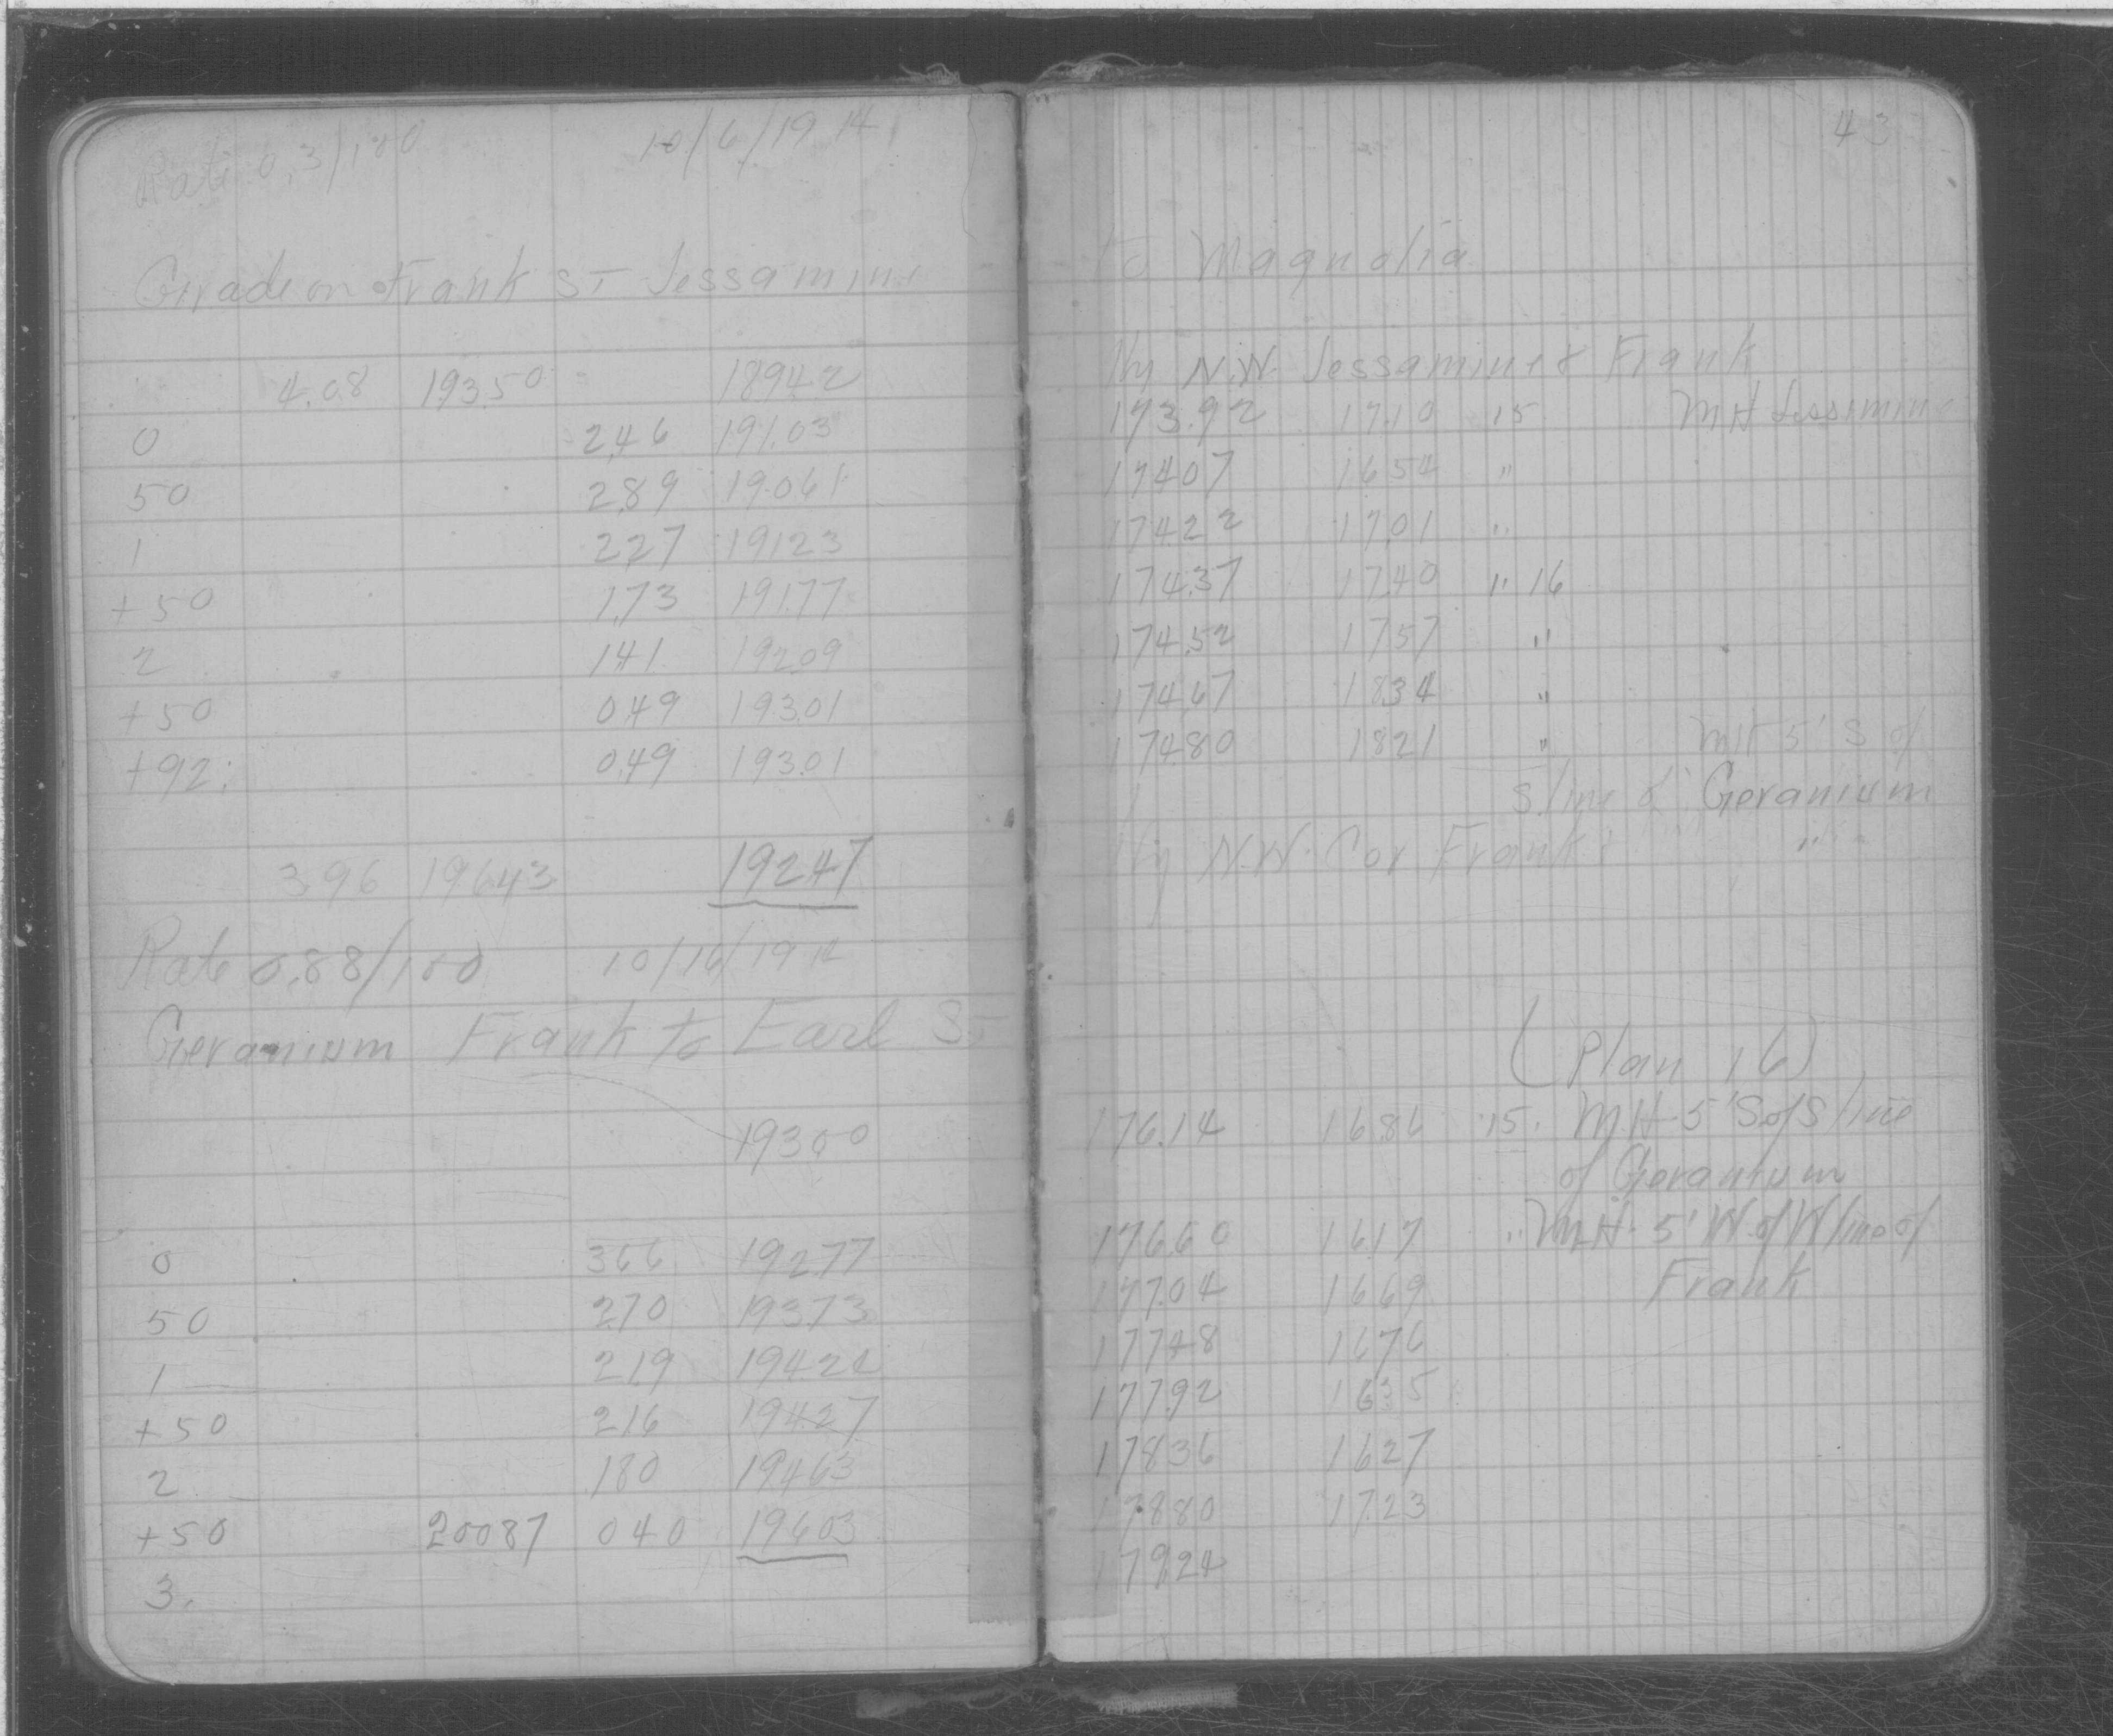 Rate 0.3/100 10/6/1914
Grade on Frank St Jessamine
4.08 193.50 189.42
0 2.46 191.03
50 2.89 190.61
1 2.27 191.23
+50 1.73 191.77
2 1.41 192.09
+50 0.49 193.01
+92. 0.49 193.01
3.96 196.43 192.47
Rate 0.88/100 10/16/1914
Geranium Frank to Earl St
193.00
0 3.66 192.77
50 2.70 193.73
1 2.19 194.24
+50 2.16 194.27
2 1.80 194.63
+50 200.87 0.40 196.03
3.
43
to Magnolia
Hy N.W. Jessamine & Frank
173.92 17.10 15 MH Jessamine
174.07 16.54 "
174.22 17.01 "
174.37 17.40 " 16
174.52 17.57 "
174.67 18.34 "
174.80 18.21 " MH 5' S of
S line of Geranium
Hy N.W. Cor Frank & "
(Plan 16)
176.14 16.86 15. MH 5' S of S line
of Geranium
176.60 16.17 " MH. 5' W of W line of
177.04 16.69 Frank
177.48 16.76
177.92 16.35
178.36 16.27
178.80 17.23
179.24